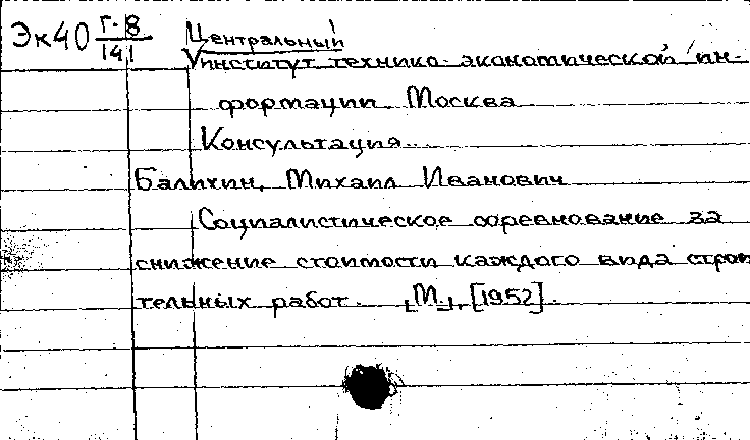 Эк40 Г-8
141
Центральный
институт технико-экономической ин-
формации. Москва
Консультация...
Балихин, Михаил Иванович
Социалистическое соревнование за
снижение стоимости каждого вида строи
тельных работ. [М.], [1952].